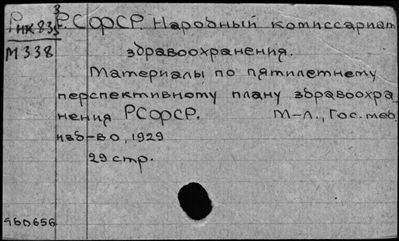 РСФСР. Народный комиссариат
здравоохранения.
М338
Материалы по пятилетнему
перспективному плану здравоохра-
нения РСФСР. М-Л., Гос. мед.
изд-во, 1929
29 стр.
460656